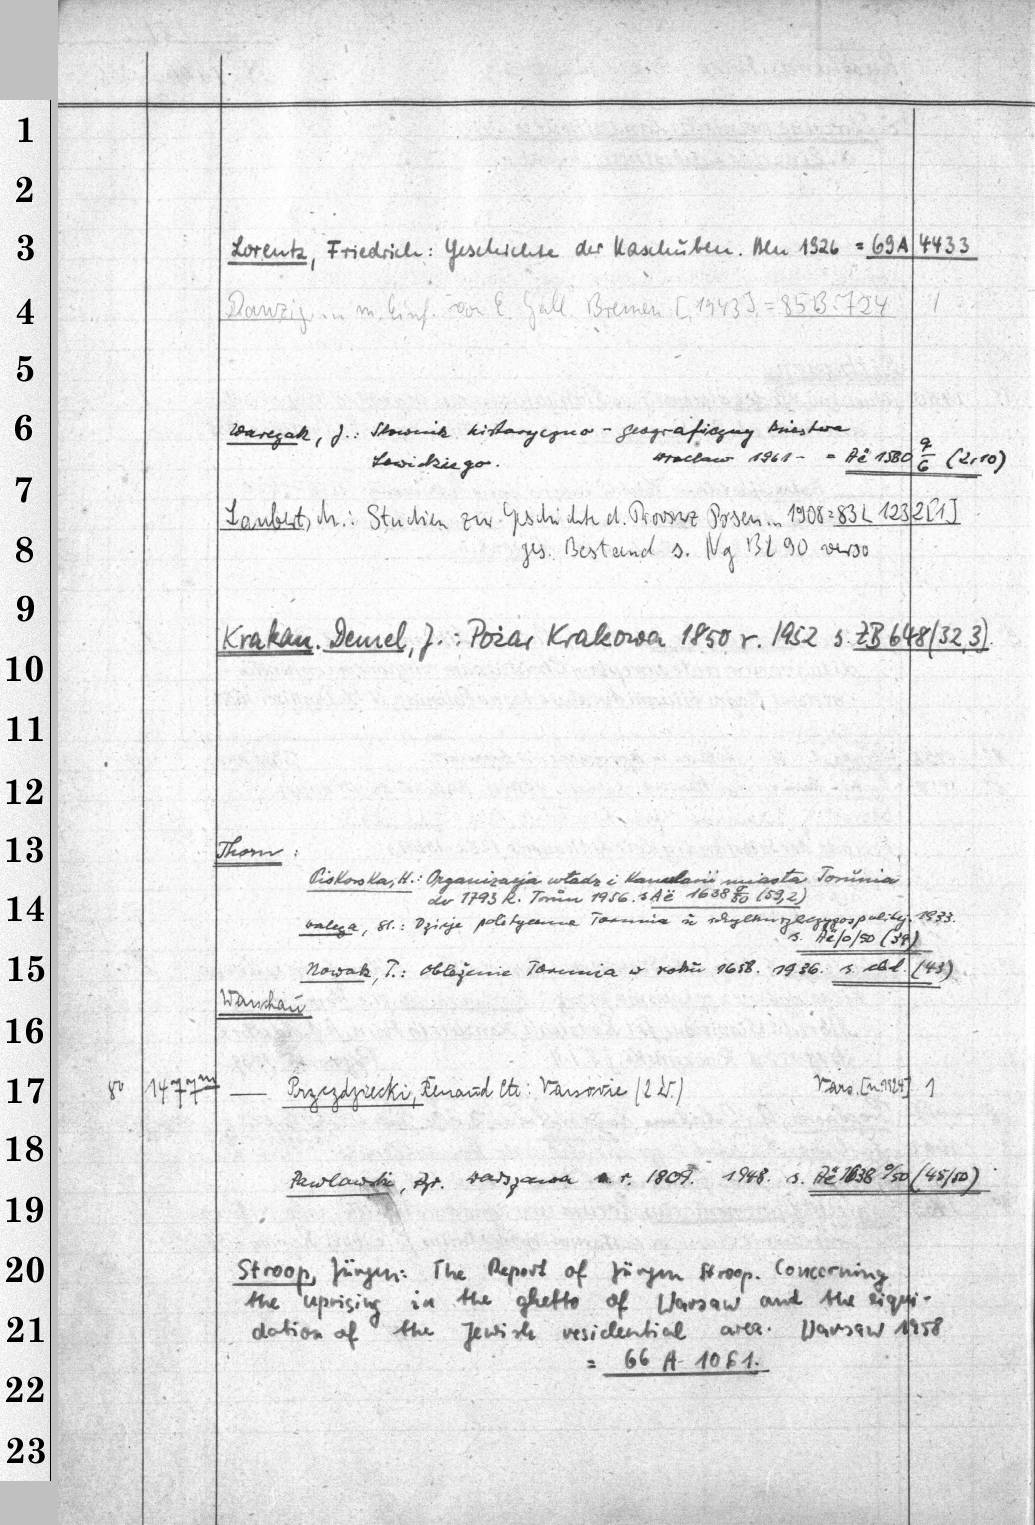 1
2
3
Lorentz, Friedrich: Geschichte der Kaschuben. Bln 1926 = 69A 4433
4
Danzig ... m. Einf. von E. Gall. Bremen [1943]. = 85 B. 724 1
5
6
Warężak, J.: Słownik historyczno-geograficzny Księstwa
Łowickiego. Wrocław 1961- = Aë 1580 9/6 (2,10)
7
Laubert, M.: Studien zur Geschichte d. Provinz Posen... 1908 = 83 L 1232[1]
8
ges. Bestand s. Ng Bl 90 verso
9
Krakau. Demel, J.: Pożar Krakowa 1850 r. 1952 s. ŻB 648 (32,3).
10
11
12
13
Thorn:
Piskorska, H.: Organizacja władz i Kancelarii miasta Torunia
14
do 1793 R. Toruń 1956. s. Aë 1638 9/50 (59,2)
Wałęga, St.: Dzieje polityczne Torunia u schyłku rzeczypospolitej. 1933.
s. Aë/0/50 (39)
15
Nowak, T.: Oblężenie Torunia w roku 1658. 1936. s. ebd. (43)
Warschau
16
17
80 1477m — Przezdziecki, Renaud Cte: Varsovie (2 W.) Vars. [u. 1924] 1
18
Pawłowski, Br. Warszawa w r. 1809. 1948. s. Aë 1638 9/50 (45/50)
19
20
Stroop, Jürgen: The Report of Jürgen Stroop. Concerning
the uprising in the ghetto of Warsaw and the liqui-
21
dation of the Jewish residential area. Warsaw 1958
= 66 A 1081.
22
23